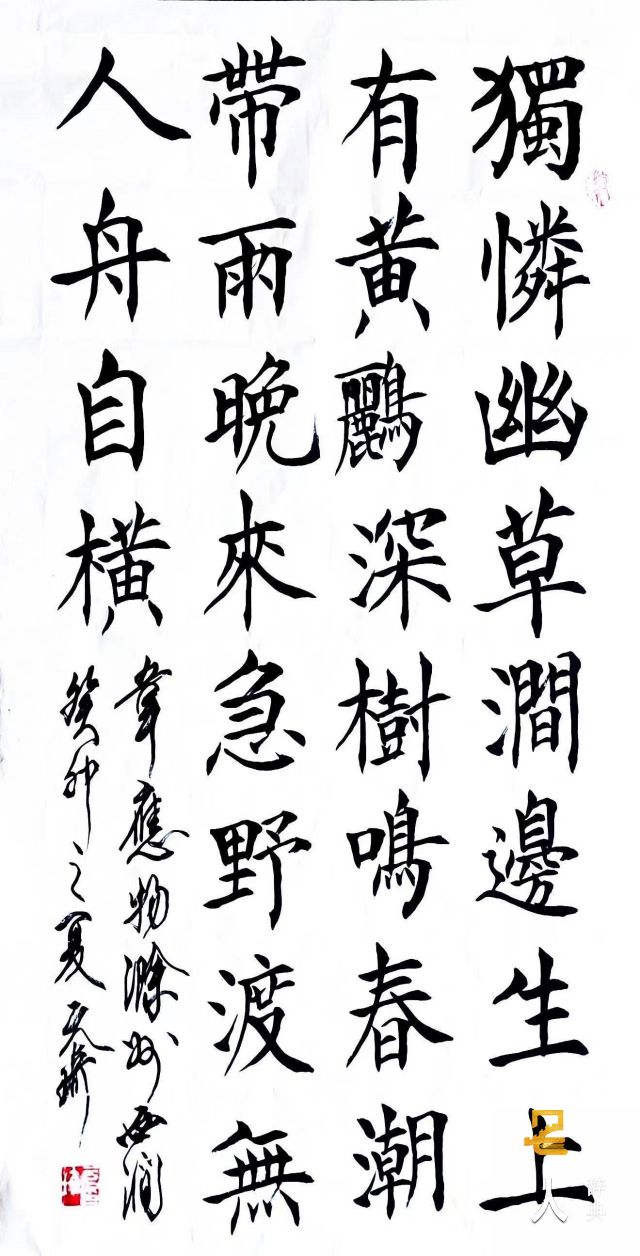 獨憐幽草澗邊生上
有黄鸝深樹鳴春潮
帶雨晚來急野渡無
人舟自橫
韋應物滁州西澗
癸卯之夏
名人
辞典